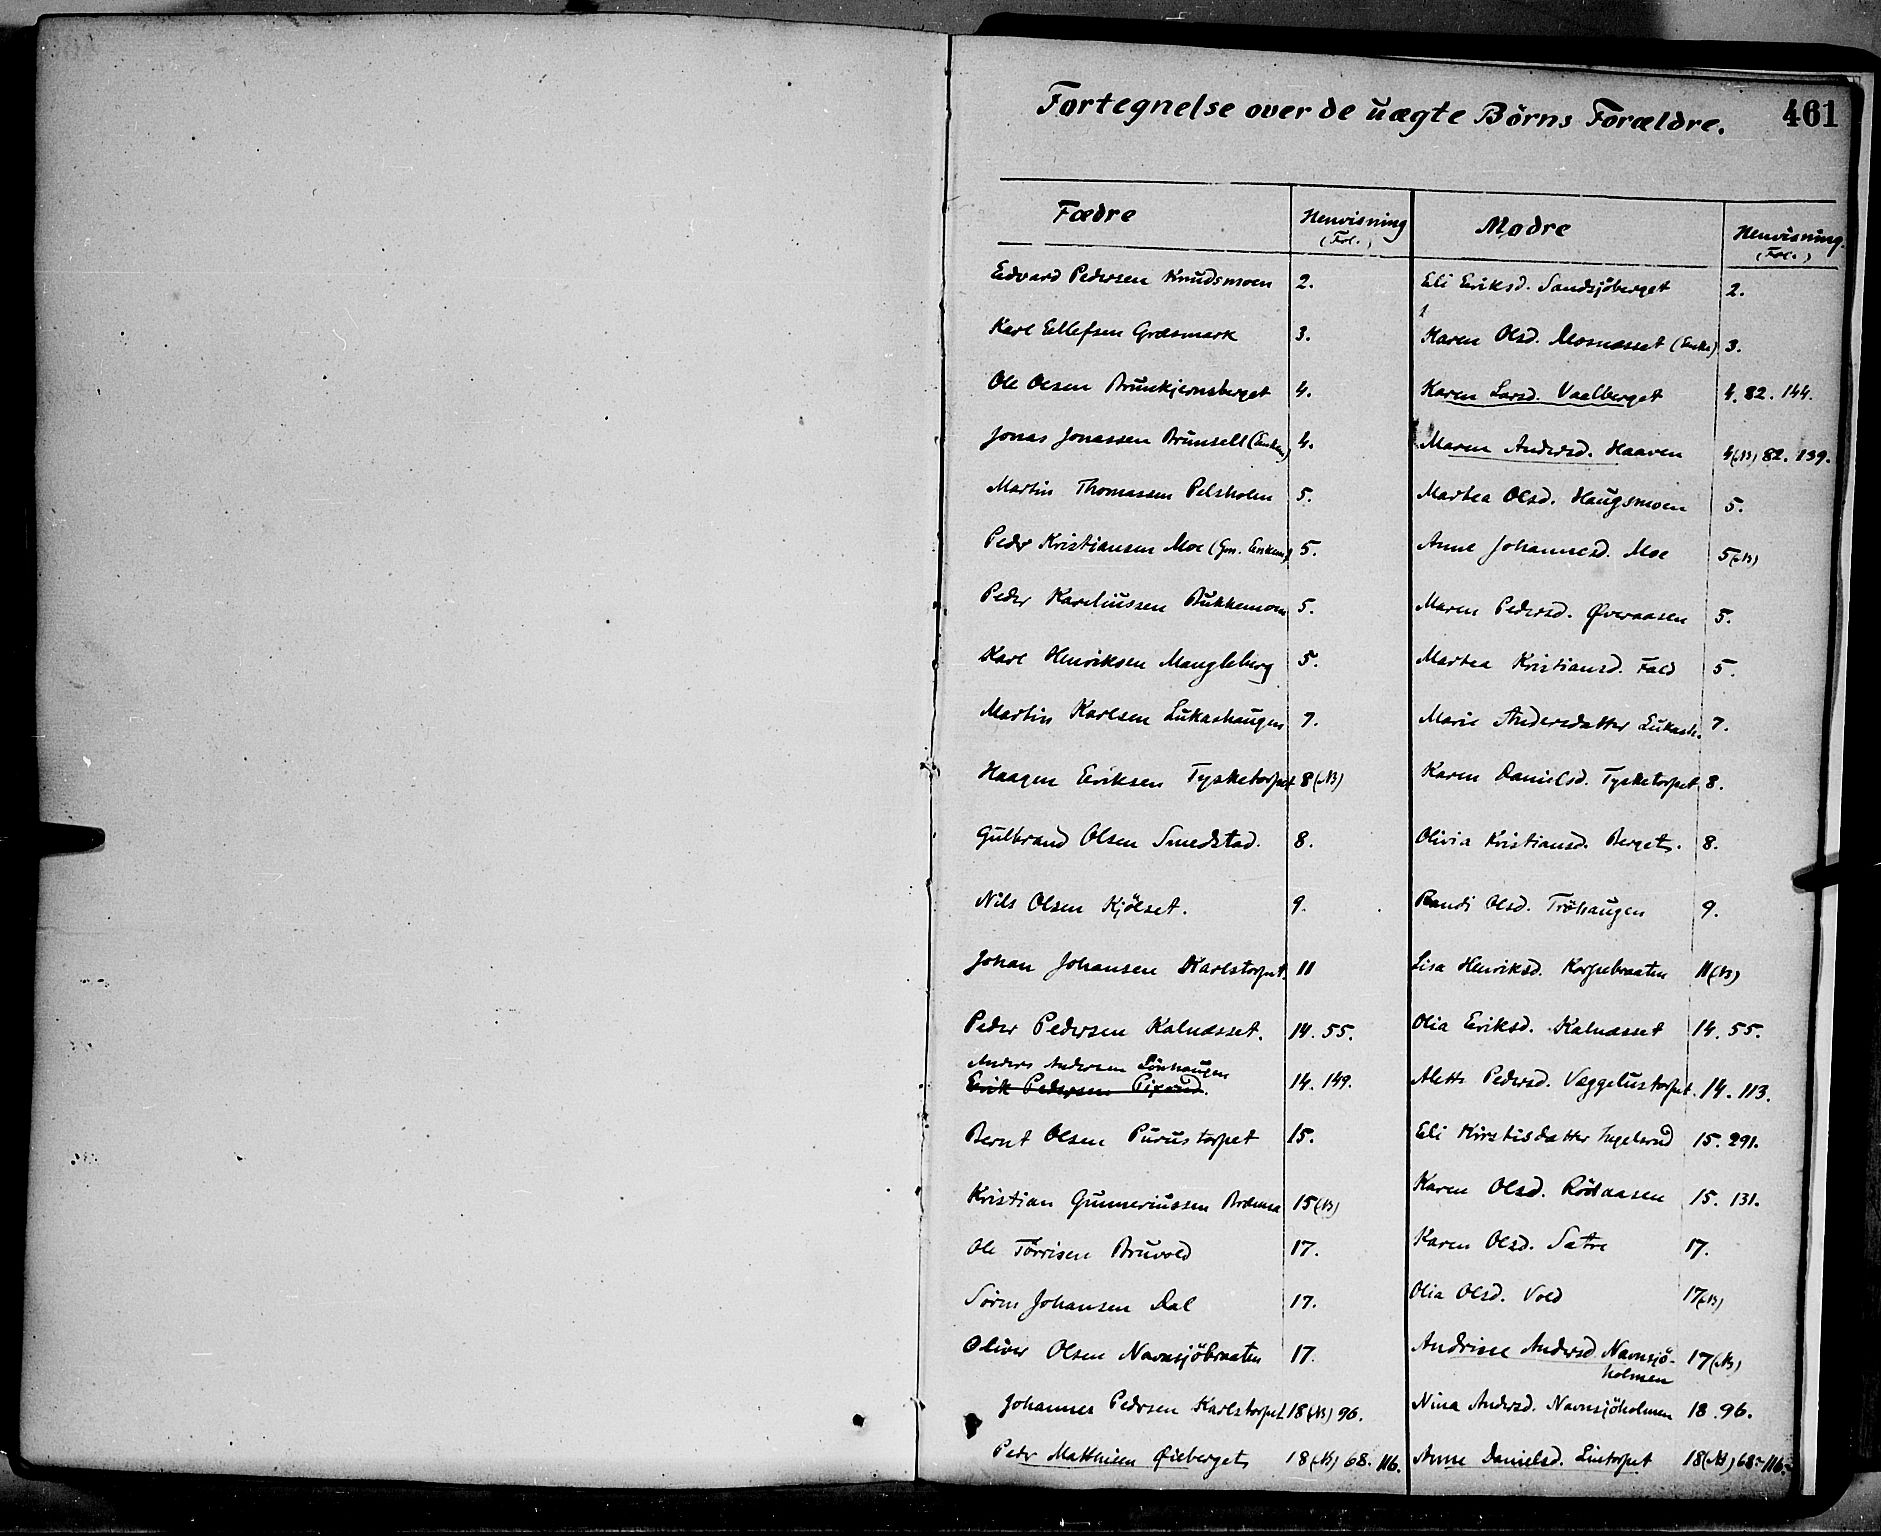 Fortegnelse over de uægte Børns Forældre. 461
Fædre Henvisning (Fol.) Mødre Henvisning. (Fol.)
Edvard Pedersen Knudsmoen 2. Eli Eriksd. Sandsjöberget 2.
Karl Ellefsen Græsmark 3. Karen Olsd. Mosnæsset (Enke) 3.
Ole Olsen Brunkjernsberget 4. Karen Larsd. Vaalberget 4. 82. 144.
Jonas Jonassen Brunsell 4. Maren Andersd. Haaven 4(NB) 82. 139.
Martin Thomassen Pelsholen 5. Martea Olsd. Haugsmoen 5.
Peder Kristiansen Moe 5. Anne Johannesd. Moe 5(NB)
Peder Kareliussen Bukkemoen 5. Maren Pedersd. Øveraasen 5.
Karl Henriksen Mangleberg 5. Martea Kristiansd. Fald 5.
Martin Karlsen Lukashaugen 7. Marie Andersdatter Lukash. 7.
Haagen Eriksen Tysketorpet 8(NB) Karen Danielsd. Tysketorpet 8.
Gulbrand Olsen Smedstad. 8. Olivia Kristiansd. Berget. 8.
Nils Olsen Kjölset. 9. Randi Olsd. Tröhaugen 9.
Johan Johansen Karlstorpet. 11 Lisa Henriksd. Korpebraaten 11(NB)
Peder Pedersen Kalnæsset. 14. 55. Olia Eriksd. Kalnæsset 14. 55.
Anders Andersen Lönhaugen
Erik Pedersen 14. 149. Mette Pedersd. Væggelustorpet. 14. 113.
Bernt Olsen Purustorpet 15. Eli Kirstisdatter Ingelsrud 15. 291.
Kristian Gunneriussen 15(NB) Karen Olsd. Rödaasen 15. 131.
Ole Torrisen Bruvold 17. Karen Olsd. Sætre 17.
Søren Johansen Dal 17. Olia Olsd. Vold 17(NB)
Oliver Olsen Navnsjöbraaten 17. Andrine Andersd. Navnsjö- 17(NB)
holmen
Johannes Pedersen Karlstorpet 18(NB) 96. Nina Andersd. Navnsjöholmen 18. 96.
Peder Matthisen Øieberget 18(NB) 68. 116. Anne Danielsd. Lintorpet 18(NB) 68. 116.